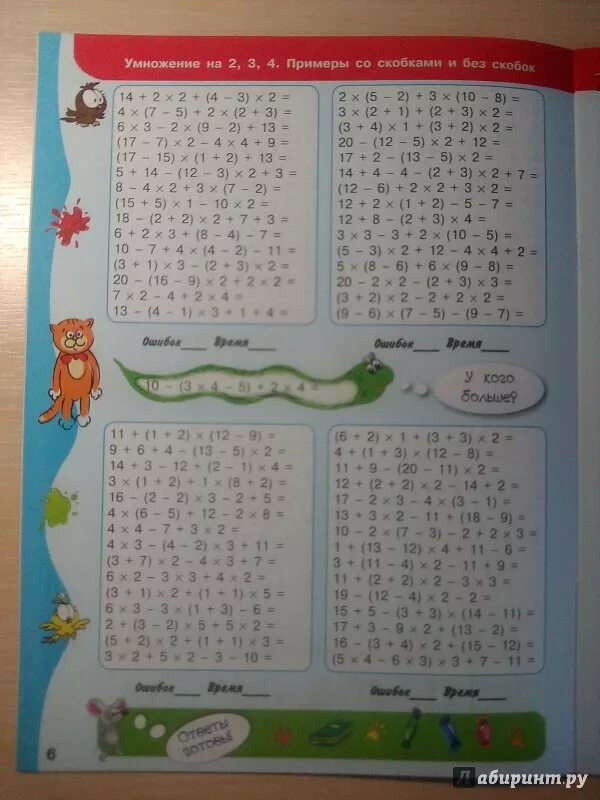 Умножение на 2, 3, 4. Примеры со скобками и без скобок
14 + 2 × 2 + (4 − 3) × 2 =
4 × (7 − 5) + 2 × (2 + 3) =
6 × 3 − 2 × (9 − 2) + 13 =
(17 − 7) × 2 − 4 × 4 + 9 =
(17 − 15) × (1 + 2) + 13 =
5 + 14 − (12 − 3) × 2 + 3 =
8 − 4 × 2 + 3 × (7 − 2) =
(15 + 5) × 1 − 10 × 2 =
18 − (2 + 2) × 2 + 7 + 3 =
6 + 2 × 3 + (8 − 4) − 7 =
10 − 7 + 4 × (4 − 2) − 11 =
(3 + 1) × 3 − (2 + 3) × 2 =
20 − (16 − 9) × 2 + 2 × 2 =
7 × 2 − 4 + 2 × 4 =
13 − (4 − 1) × 3 + 1 + 4 =
Ошибок___ Время___
2 × (5 − 2) + 3 × (10 − 8) =
3 × (2 + 1) + (2 + 3) × 2 =
(3 + 4) × 1 + (3 + 2) × 2 =
20 − (12 − 5) × 2 + 12 =
17 + 2 − (13 − 5) × 2 =
14 + 4 − 4 − (2 + 3) × 2 + 7 =
(12 − 6) + 2 × 2 + 3 × 2 =
12 + 2 × (1 + 2) − 5 − 7 =
12 + 8 − (2 + 3) × 4 =
3 × 3 − 3 + 2 × (10 − 5) =
(5 − 3) × 2 + 12 − 4 × 4 + 2 =
5 × (8 − 6) + 6 × (9 − 8) =
20 − 2 × 2 − (2 + 3) × 3 =
(3 + 2) × 2 − 2 + 2 × 2 =
(9 − 6) × (7 − 5) − (9 − 7) =
Ошибок___ Время___
10 − (3 × 4 − 5) + 2 × 4 =
У кого
больше?
11 + (1 + 2) × (12 − 9) =
9 + 6 + 4 − (13 − 5) × 2 =
14 + 3 − 12 + (2 − 1) × 4 =
3 × (1 + 2) + 1 × (8 + 2) =
16 − (2 − 2) × 3 − 2 + 5 =
4 × (6 − 5) + 12 − 2 × 8 =
4 × 4 − 7 + 3 × 2 =
4 × 3 − (4 − 2) × 3 + 11 =
(3 + 7) × 2 − 4 × 3 + 7 =
6 × 2 − 3 × 3 + 4 × 2 =
(3 + 1) × 2 + (1 + 1) × 5 =
6 × 3 − 3 × (1 + 3) − 6 =
2 + (3 − 2) × 5 + 5 × 2 =
(5 + 2) × 2 + (1 + 1) × 3 =
3 × 2 + 5 × 2 − 3 − 10 =
Ошибок___ Время___
(6 + 2) × 1 + (3 + 3) × 2 =
4 + (1 + 3) × (12 − 8) =
11 + 9 − (20 − 11) × 2 =
12 + (2 + 2) × 2 − 14 + 2 =
17 − 2 × 3 − 4 × (3 − 1) =
13 + 3 × 2 − 11 + (18 − 9) =
10 − 2 × (7 − 3) − 2 + 2 × 3 =
1 + (13 − 12) × 4 + 11 − 6 =
3 + (11 − 4) × 2 − 11 + 9 =
11 + (2 + 2) × 2 − 3 × 3 =
19 − (12 − 4) × 2 − 2 =
15 + 5 − (3 + 3) × (14 − 11) =
17 + 3 − 9 × 2 + (13 − 2) =
16 − (3 + 4) × 2 + (15 − 12) =
(5 × 4 − 6 × 3) × 3 + 7 − 11 =
Ошибок___ Время___
Ответы
готовы!
6
Лабиринт.ру